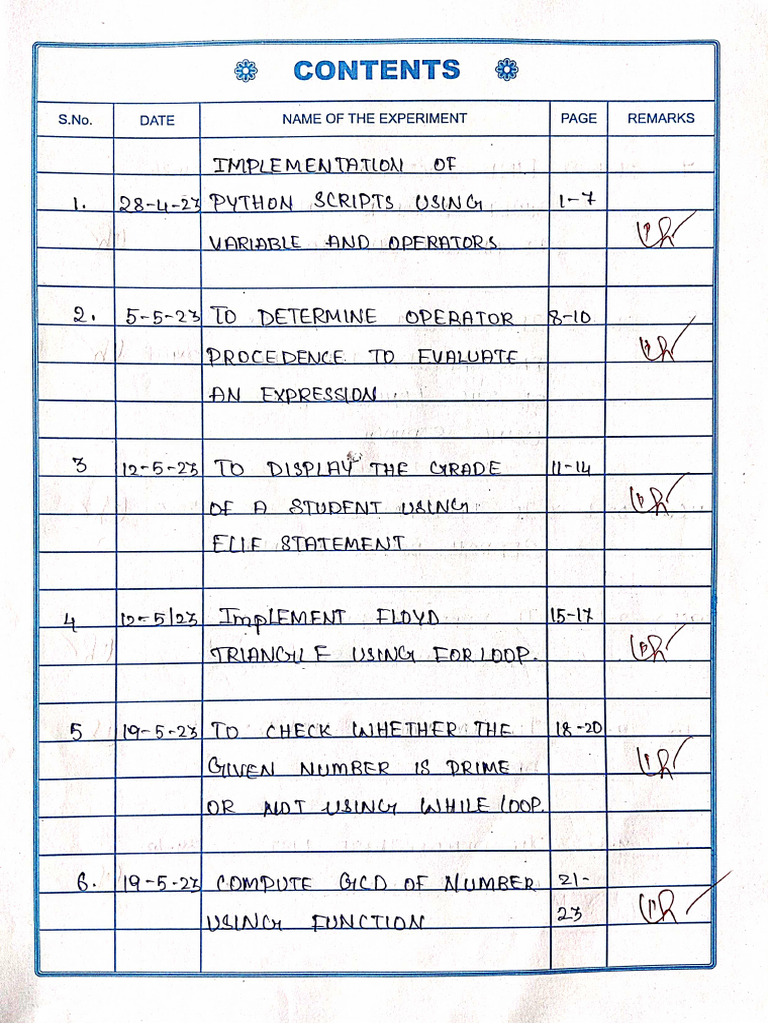 CONTENTS
S.No. DATE NAME OF THE EXPERIMENT PAGE REMARKS
IMPLEMENTATION OF
1. 28-4-23 PYTHON SCRIPTS USING 1-7
VARIABLE AND OPERATORS
2. 5-5-23 TO DETERMINE OPERATOR 8-10
PROCEDENCE TO EVALUATE
AN EXPRESSION
3 12-5-23 TO DISPLAY THE GRADE 11-14
OF A STUDENT USING
ELIF STATEMENT
4 12-5/23 ImpLEMENT FLOYD 15-17
TRIANGLE USING FOR LOOP.
5 19-5-23 TO CHECK WHETHER THE 18-20
GIVEN NUMBER IS PRIME
OR NOT USING WHILE LOOP.
6. 19-5-23 COMPUTE GCD OF NUMBER 21-
USING FUNCTION 23